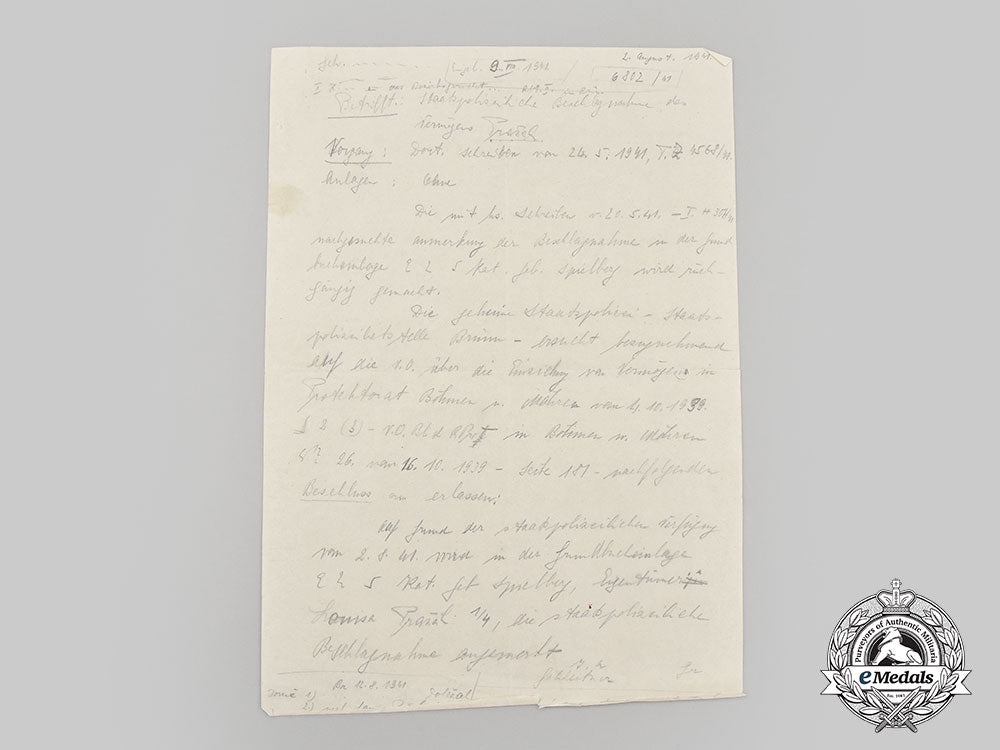 2. August 1941
Engel. 9. VIII 1941
6802/41
Betrifft: Staatspolizeiliche Beschlagnahme des
Vermögens Prasch
Vorgang: Dort. Schreiben vom 26. 5. 1941, 4568/41.
Anlagen: Ohne
Die mit hs. Schreiben v. 20.5.41. - I.
nachgesuchte Anmerkung der Beschlagnahme in der Grund
buchseinlage E Z 5 Kat. Geb. Spielberg wird rück-
gängig gemacht.
Die geheime Staatspolizei - Staats-
polizeileitstelle Brünn - ersucht bezugnehmend
auf die V.O. über die Einziehung von Vermögen in
Protektorat Böhmen u. Mähren vom 4.10.1939.
§ 2 - V.O. Bl d RProt in Böhmen u. Mähren
No 26. vom 16. 10. 1939 - Seite 181 - nachfolgenden
Beschluss zu erlassen:
Auf Grund der staatspolizeilichen Verfügung
vom 2. 8. 41. wird in der Grundbucheinlage
E Z 5 Kat. Geb Spielberg, Eigentümerin
Louisa Prasch 1/4, die staatspolizeiliche
Beschlagnahme angemerkt
12.8.1941
1)
2) mit dem
Purveyors of Authentic Militaria
eMedals